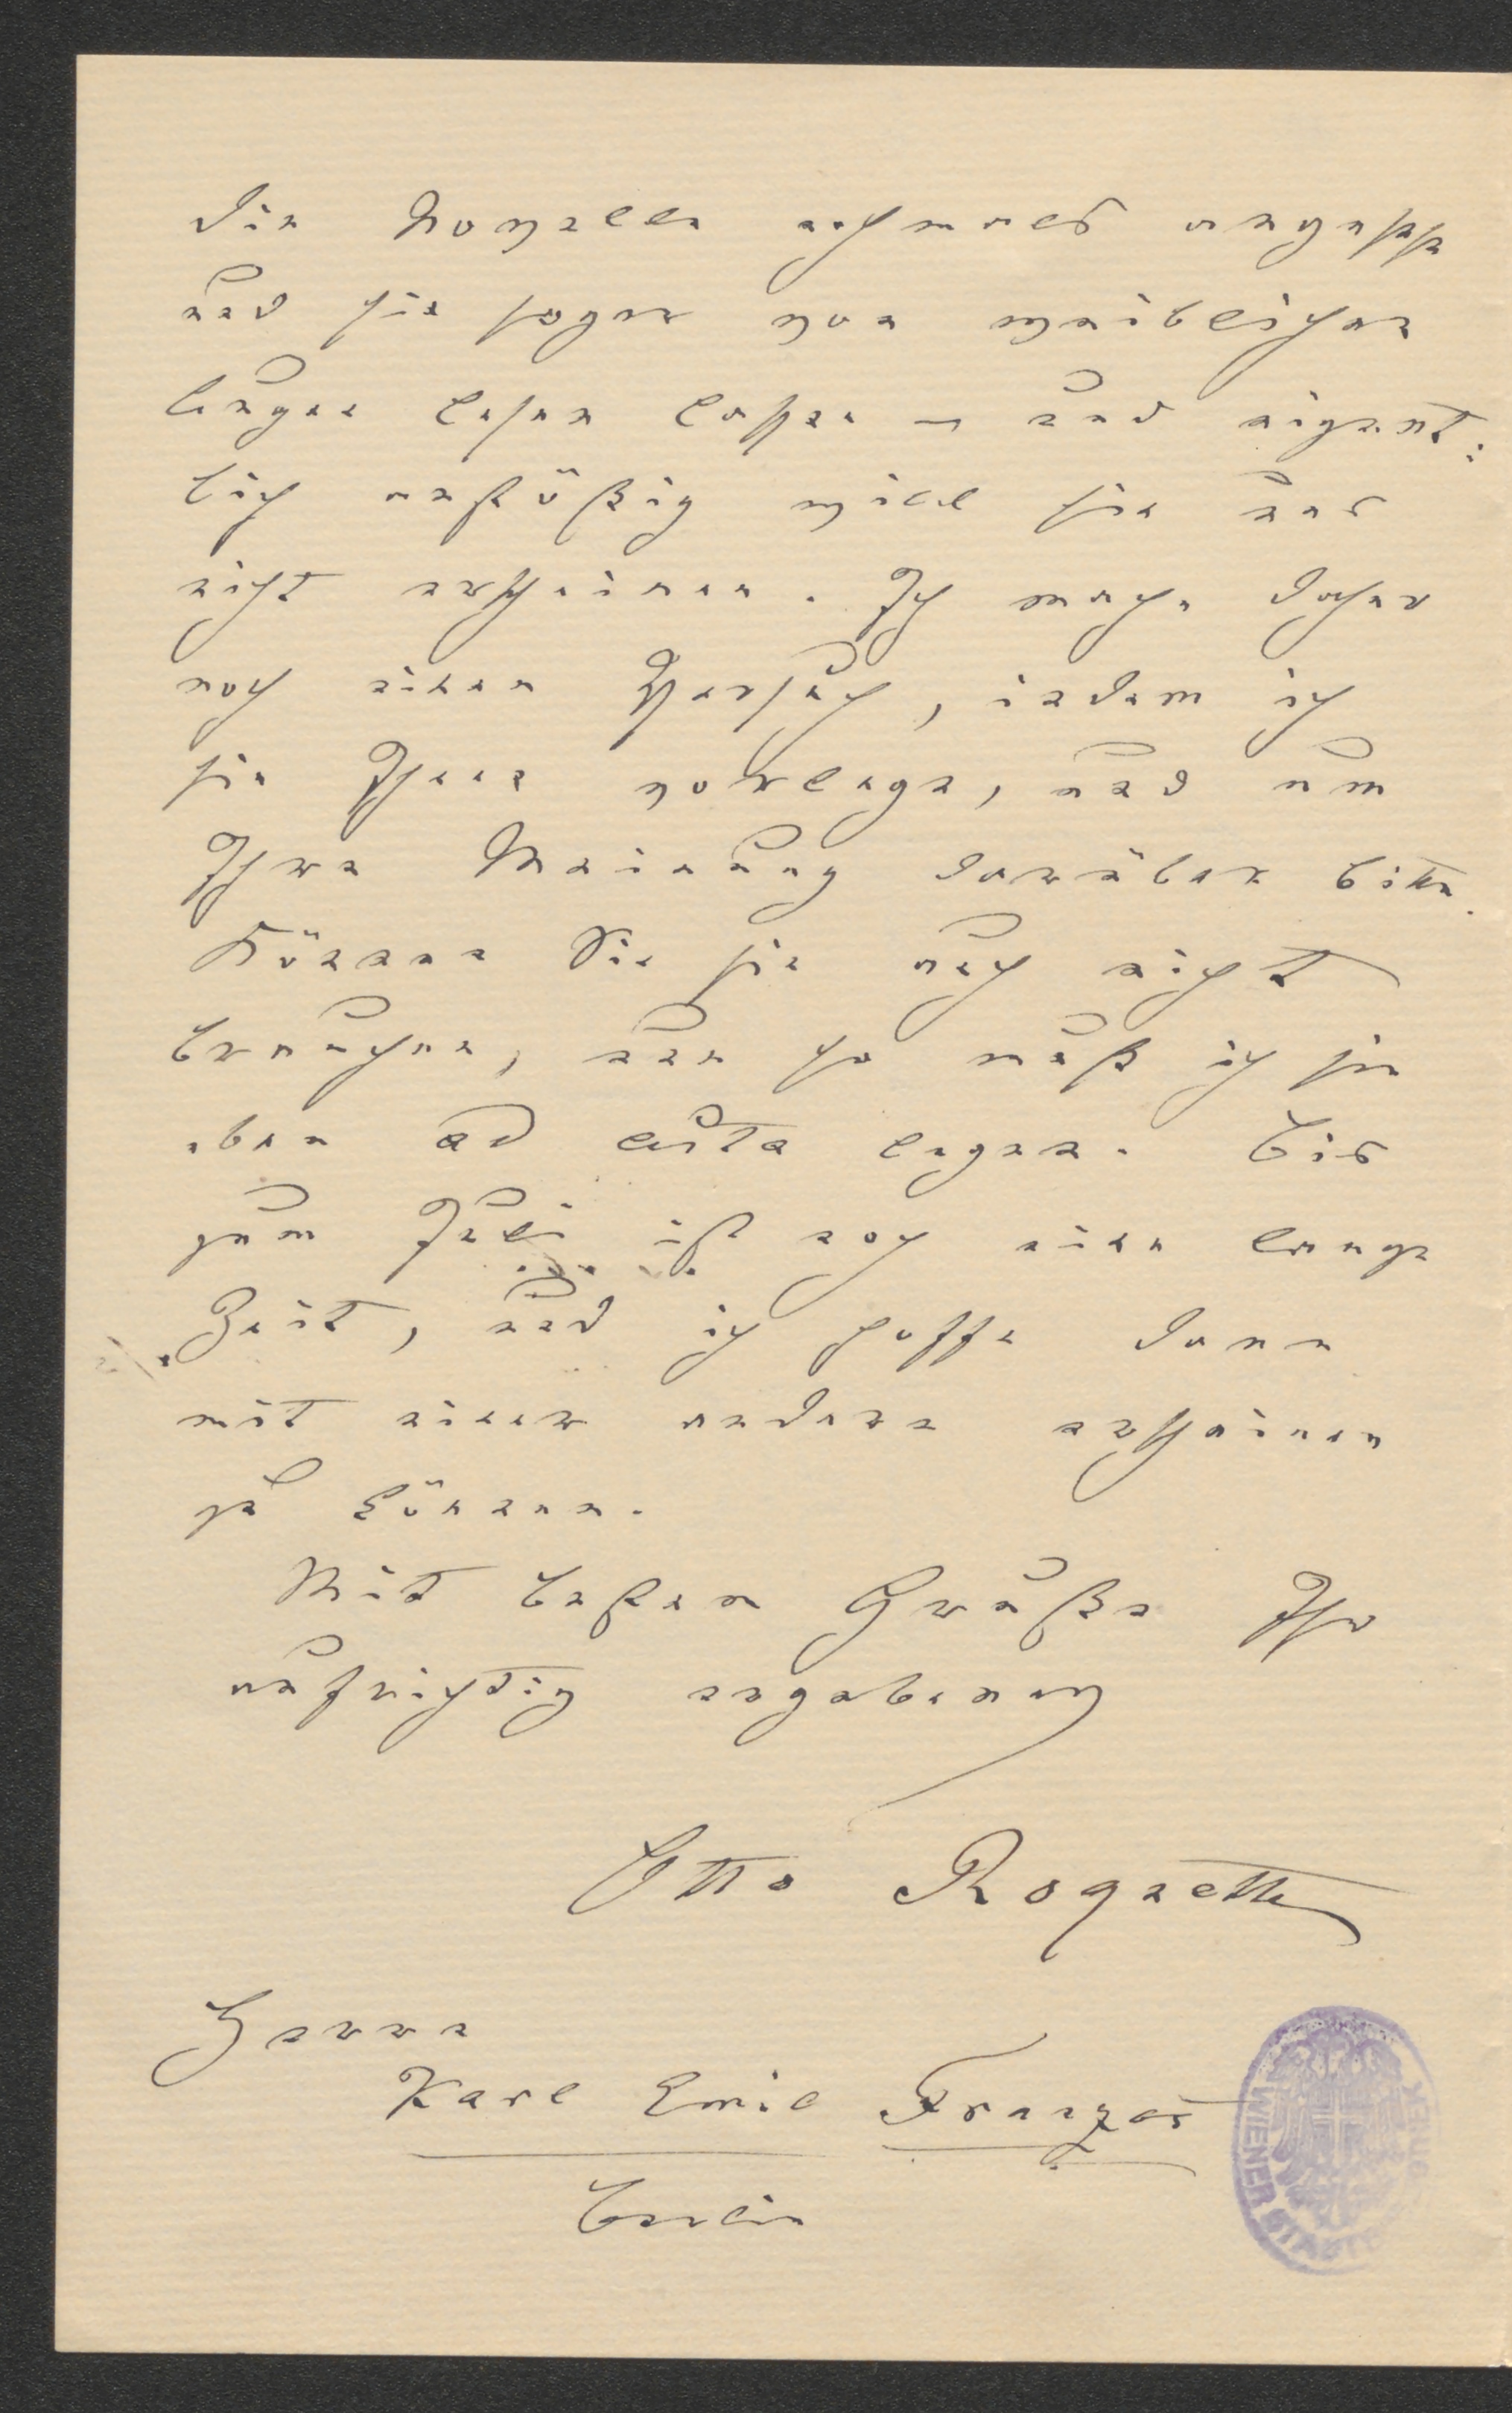 die Novelle nochmals angesehn
und sie sogar von weiblichen
Augen lesen lassen – und eigent:
lich anstößig will sie uns
nicht erscheinen. Ich mache daher
noch einen Versuch, indem ich
sie Ihnen vorlege, und um
Ihre Meinung darüber bitte.
Können Sie sie auch nicht
brauchen, nun so muß ich sie
eben ad acta legen. Bis
zum Juli ist noch eine lange
Zeit, und ich hoffe dann
mit einer andern erscheinen
zu können.
Mit bestem Gruße Ihr
aufrichtig ergebener
Otto Roquette
Herrn
Karl Emil Franzos
Berlin
WIENER STADT